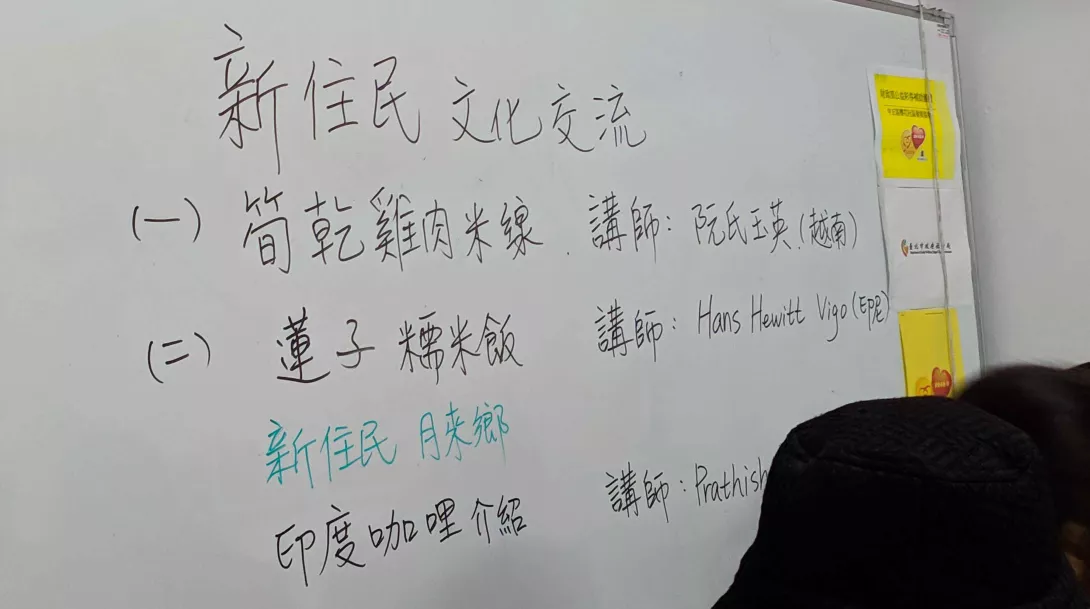 新住民 文化交流
(一) 筍乾雞肉米線 講師：阮氏玉英 (越南)
(二) 蓮子糯米飯 講師：Hans Hewitt Vigo (印尼)
新住民 月來鄉
印度咖哩介紹 講師：Prathish